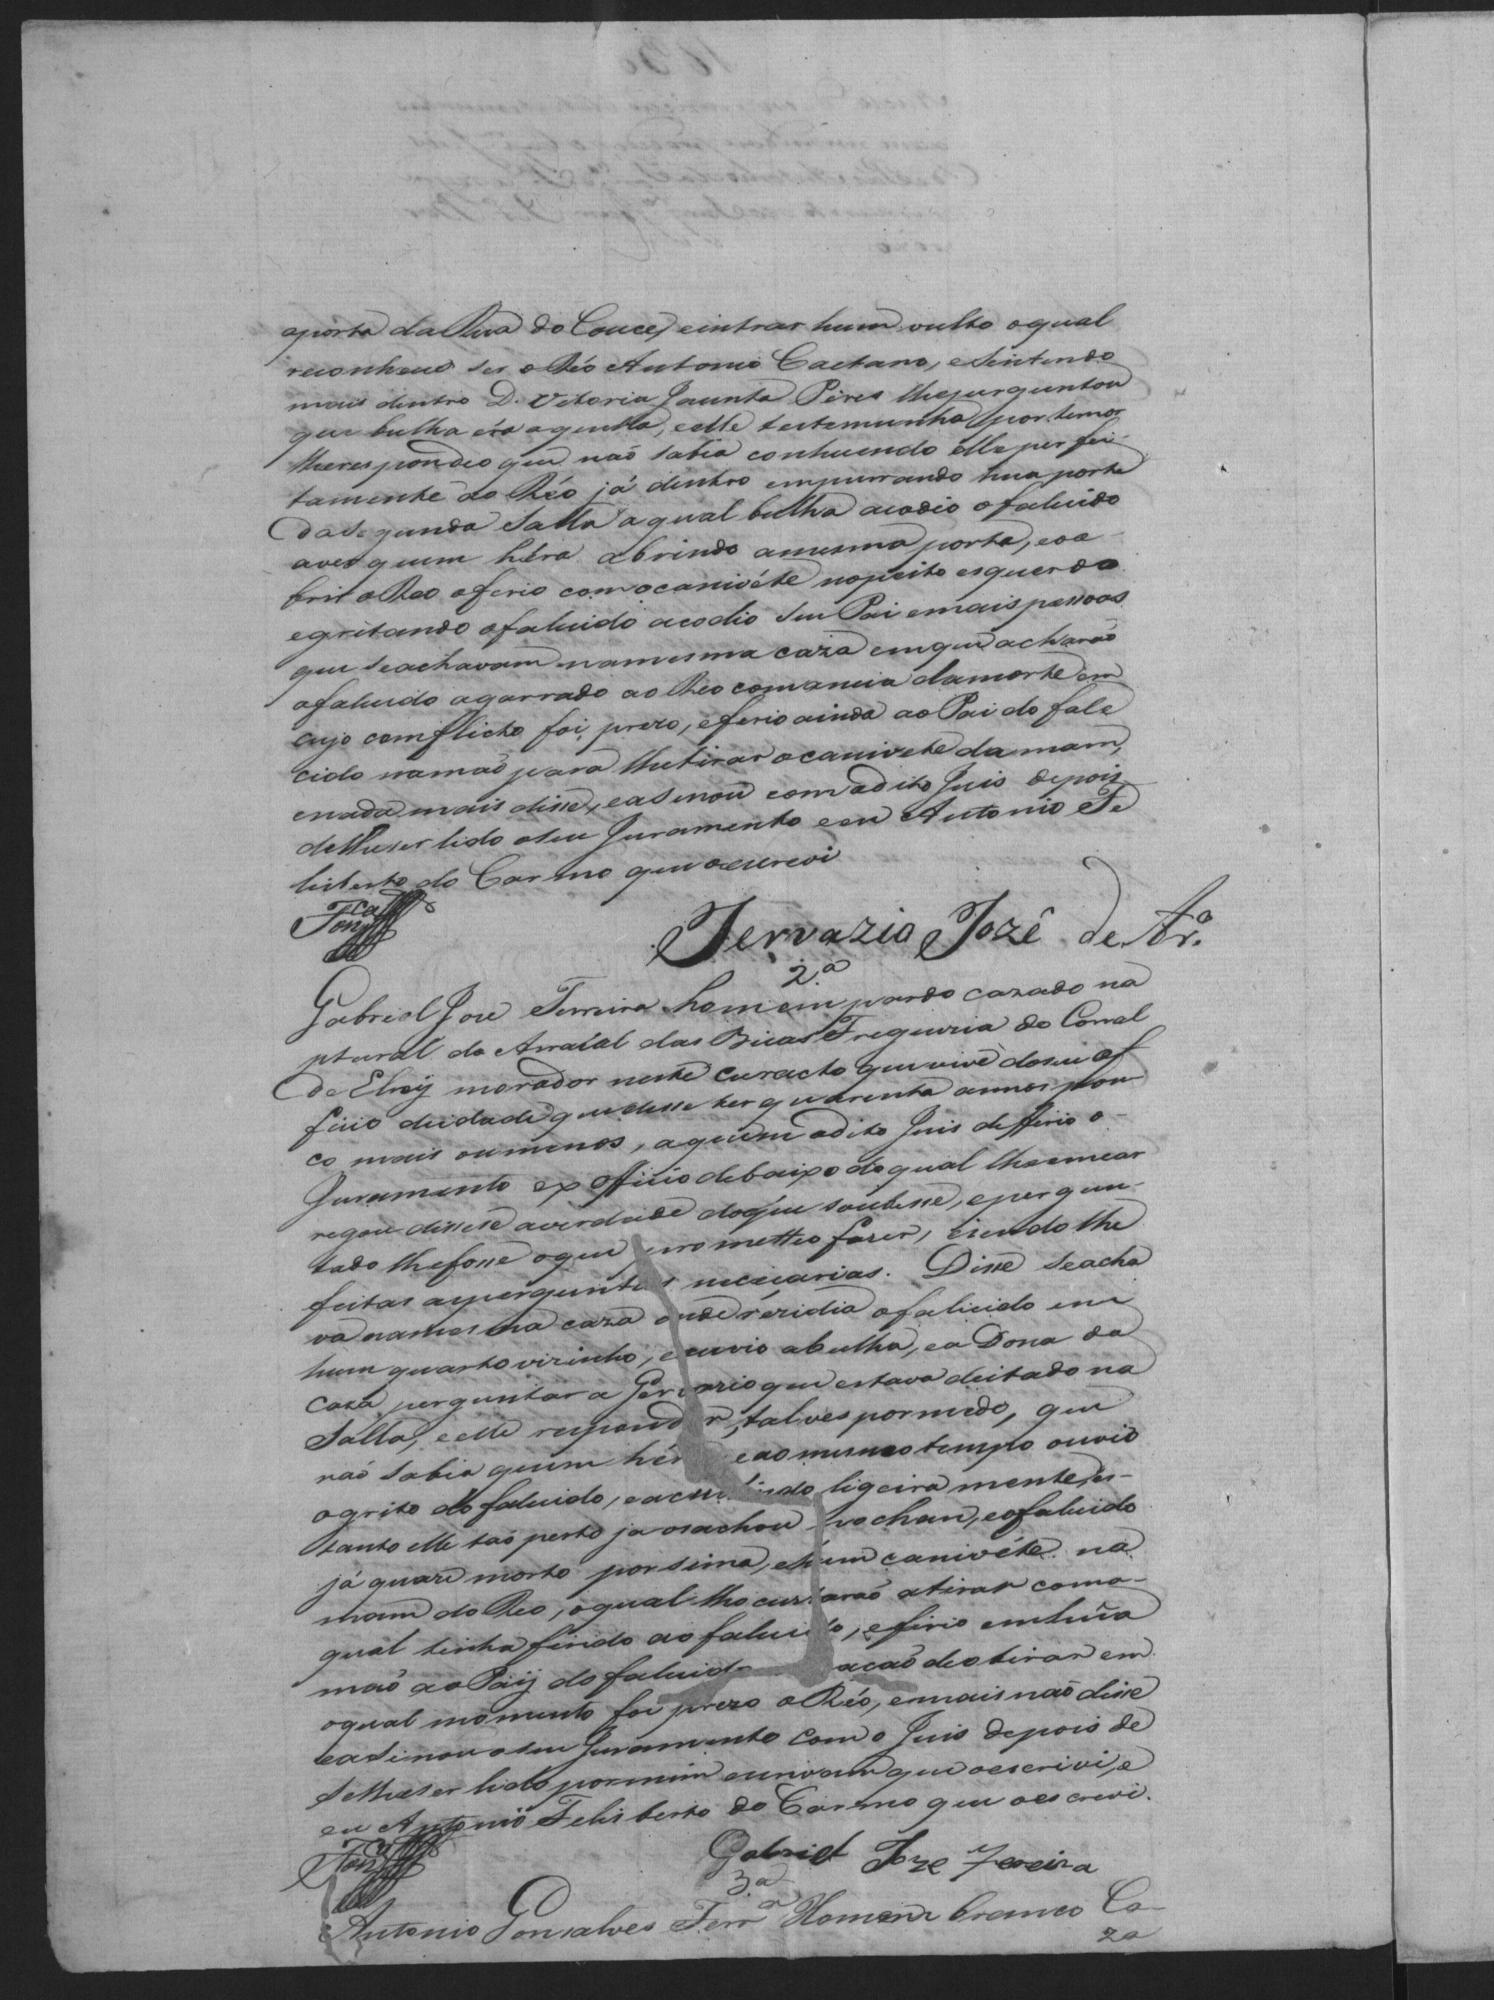 aporta da Rua do Couce, eintrar hum vulto oqual
reconheceo ser o Réo Antonio Caetano, e Sentindo
mais dentro D. Vitoria Jacinta Pires lheperguntou
que bulha éra aquella, eelle testemunha por temor
lherespondeo que não sabia conhecendo elle perfei-
tamente ao Réo já dentro empurrando hua porta
da Segunda Salla aqual bulha acodio ofalecido
aver quem héra abrindo amesma porta, eoa-
brir o Reo oferio com ocanivéte nopeito esquerdo
egritando ofalecido acodio seu Pai emais pessoas
que seachavam namesma caza emque acharão
ofalecido agarrado ao Reo comancia damorte em
cujo comflicto foi prezo, eferio ainda ao Pai do fale
cido namaõ para lhetirar ocanivete da mam,
enada mais disse, easinou com odito Juis depois
delheser lido oseu Juramento eeu Antonio Fe
lisberto do Carmo que oescrevi
Gervazio Jozê de Ar.º
2.ª
Gabriel Joze Ferreira homem pardo cazado na
ptural do Arraial das Bicas Freguezia do Corral
de Elrey morador neste curacto que vive doseu of
ficio deidade que disse ter quarenta annos pou
co mais oumenos, aquem odito Juis defferio o-
Juramento ex officio debaixo doqual lheemcar
regou dissese averdade doque soubesse, epergun-
tado lhefosse oque prometteo fazer, esendo lhe
feitas asperguntas necesarias. Disse seacha
va namesma caza onde rezidia ofalecido em
hum quarto vizinho, e ouvio abulha, ea Dona da
Caza perguntar a Gervazio que estava deitado na
Salla, eelle responder, talves pormedo, que
não sabia quem héra eao mesmo tempo ouvio
ogrito do falecido, eacudindo ligeiramente, es-
tando elle tão perto ja osachou no chan, eofalecido
já quaze morto por sima, ehum canivéte na
mam do Reo, oqual lhe custarão atirar como-
qual tinha ferido ao falecido, eferio emhũa
mão ao Paij do falecido acaõ deotirar em
oqual momento foi prezo o Réo, emais não disse
easinou oseu Juramento com o Juis depois de
delheser lido pormim escrivam que oescrivi, e
eu Antonio Felisberto do Carmo que oescrevi.
Gabriel Joze Fereira
3.ª
Antonio Gonsalves Ferr.ª Homem branco Ca-
za